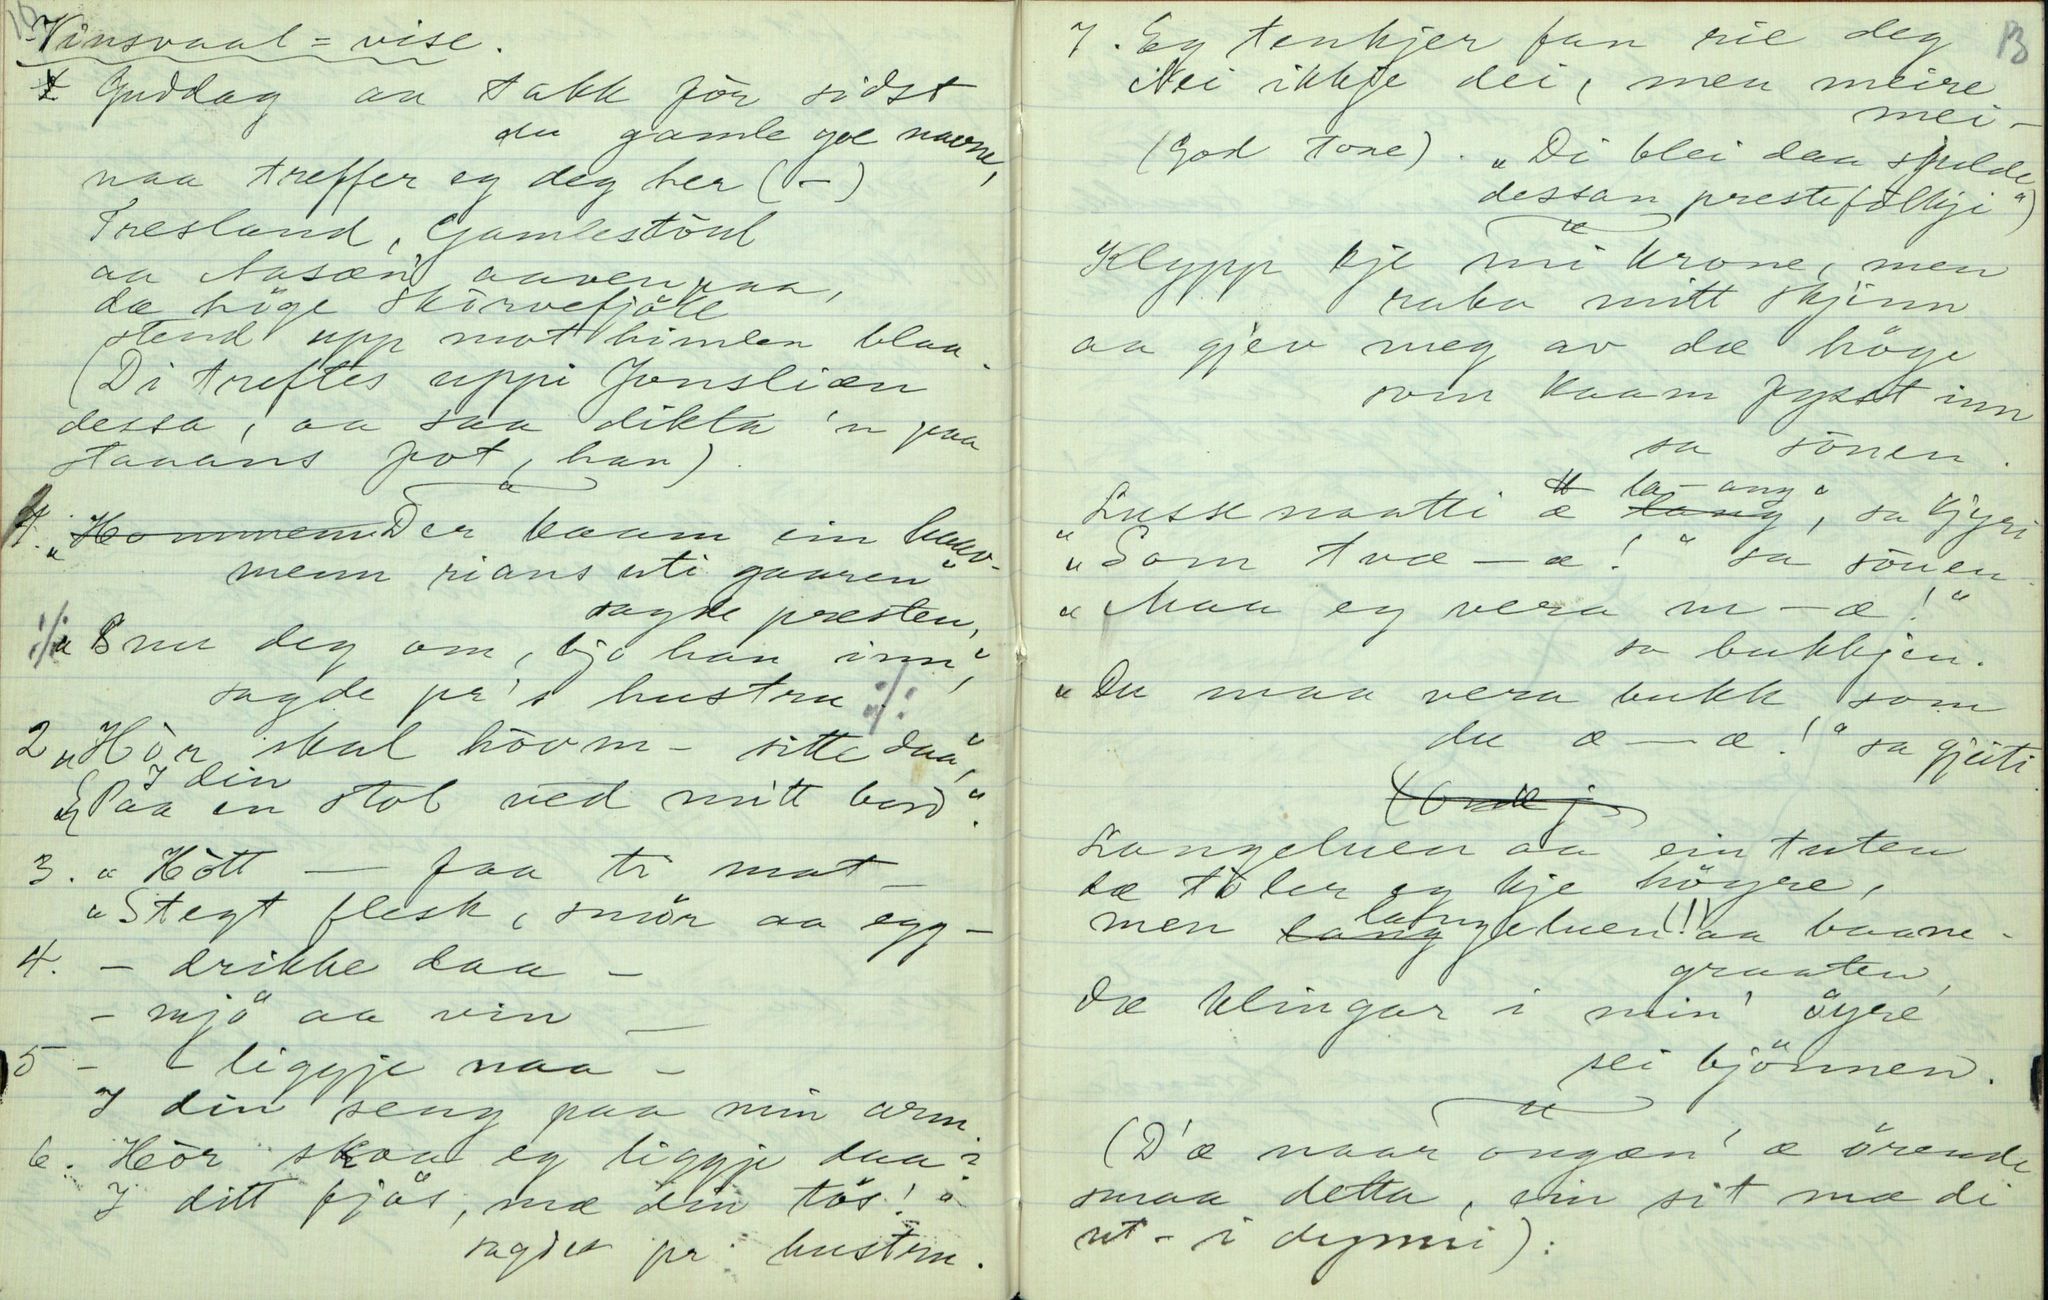 Vinsvaal=vise.
Guddag aa takk för sidst
du gamle goe navne,
naa treffer eg deg her (-)
Fresland, Gamlestöul
aa Nasæn' aavenpaa,
dæ höge Skörvefjöll
stend upp mot himlen blaa.
(Di treftes uppi Jonsliæn
dessa, aa saa dikta 'n paa
staaans fot, han).
1. „Der kaam ein
menn rians uti gaaren"
sagde presten,
„Snu deg om, bjo han inn",
sagde pr's hustru
2 „Hör skal hövm- sitte daa",
I din
„Paa en stol ved mitt bord".
3. „Hött — faa ti mat —
„Stegt flesk, smör aa egg —
4. — drikke daa —
— mjö aa vin —
5 — — liggje naa —
I din seng paa min arm
6. Hör skaa eg liggje daa?
I ditt fjös, mæ din tös!"
sagde pr. hustru.
13
7. Eg tenkjer fan rie deg
Nei ikkje dei, men meire
mei —
(God tone). „Di blei daa spelde
dessan prestefolkji")
Klypp kje mi krone, men
raka mitt skjinn
aa gjev meg av dæ höge
som kaam fysst inn
sa sönen.
la-ang"
„Lussenaatti æ lang, sa kjyri
„Som tvæ—æ!" sa sönen
„Maa eg vera m—æ!"
sa bukkjen.
„Du maa vera bukk som
du æ—æ!" sa gjeiti.
Langeluen aa ein tuten
dæ toler eg kje högre,
men langeluen (!) aa baane-
graaten,
dæ klingar i min' öyre
sei bjönnen.
(D'æ naar ongæn' æ örende
smaa detta, ein sit mæ di
ut- i dynni):